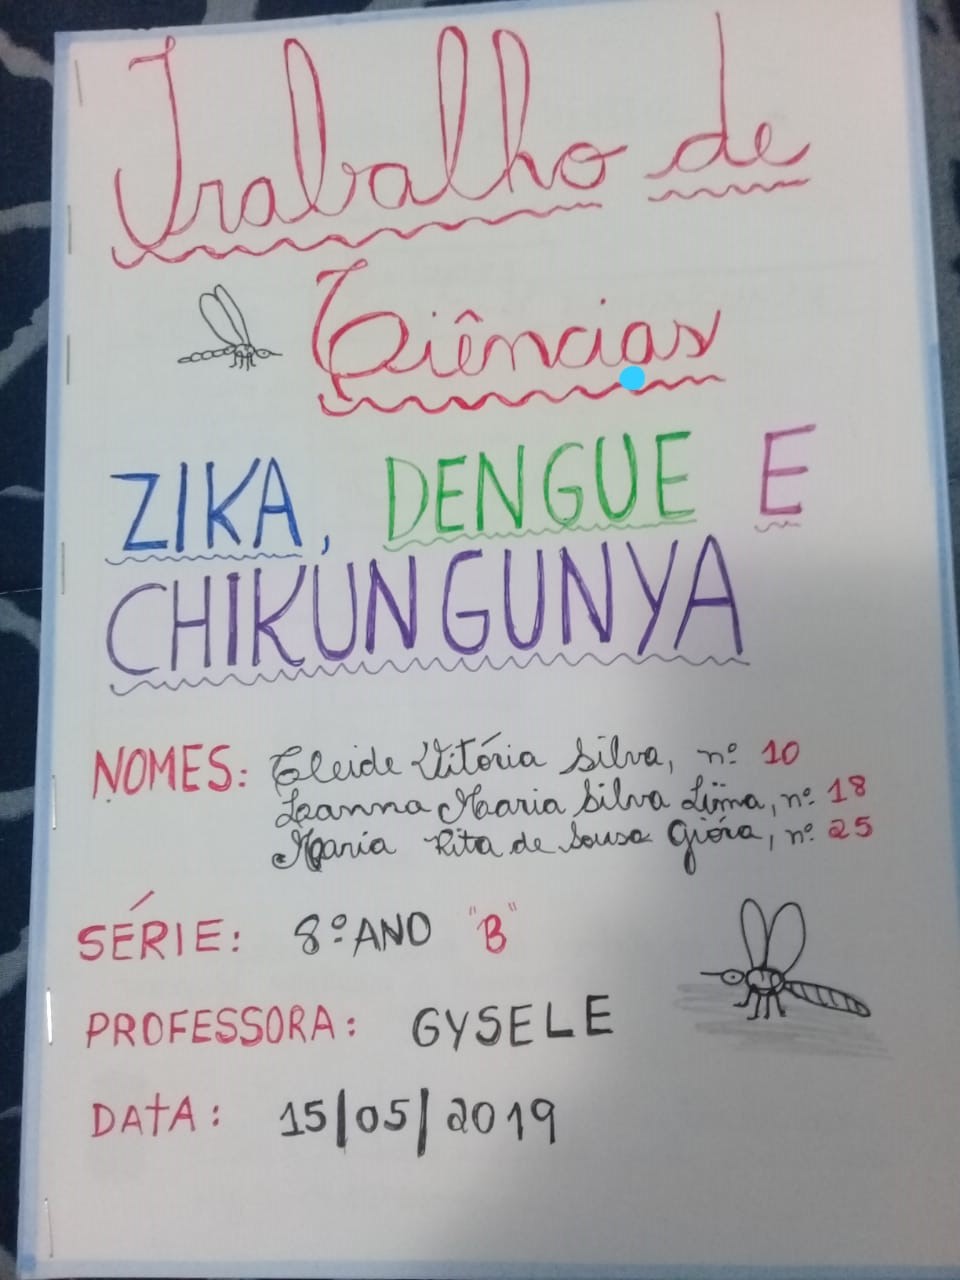 Trabalho de
Ciências
ZIKA, DENGUE E
CHIKUNGUNYA
NOMES: Cleide Vitória Silva, nº 10
Loanna Maria Silva Lima, nº 18
Maria Rita de Sousa Gióra, nº 25
SÉRIE: 8º ANO "B"
PROFESSORA: GYSELE
DATA: 15/05/2019